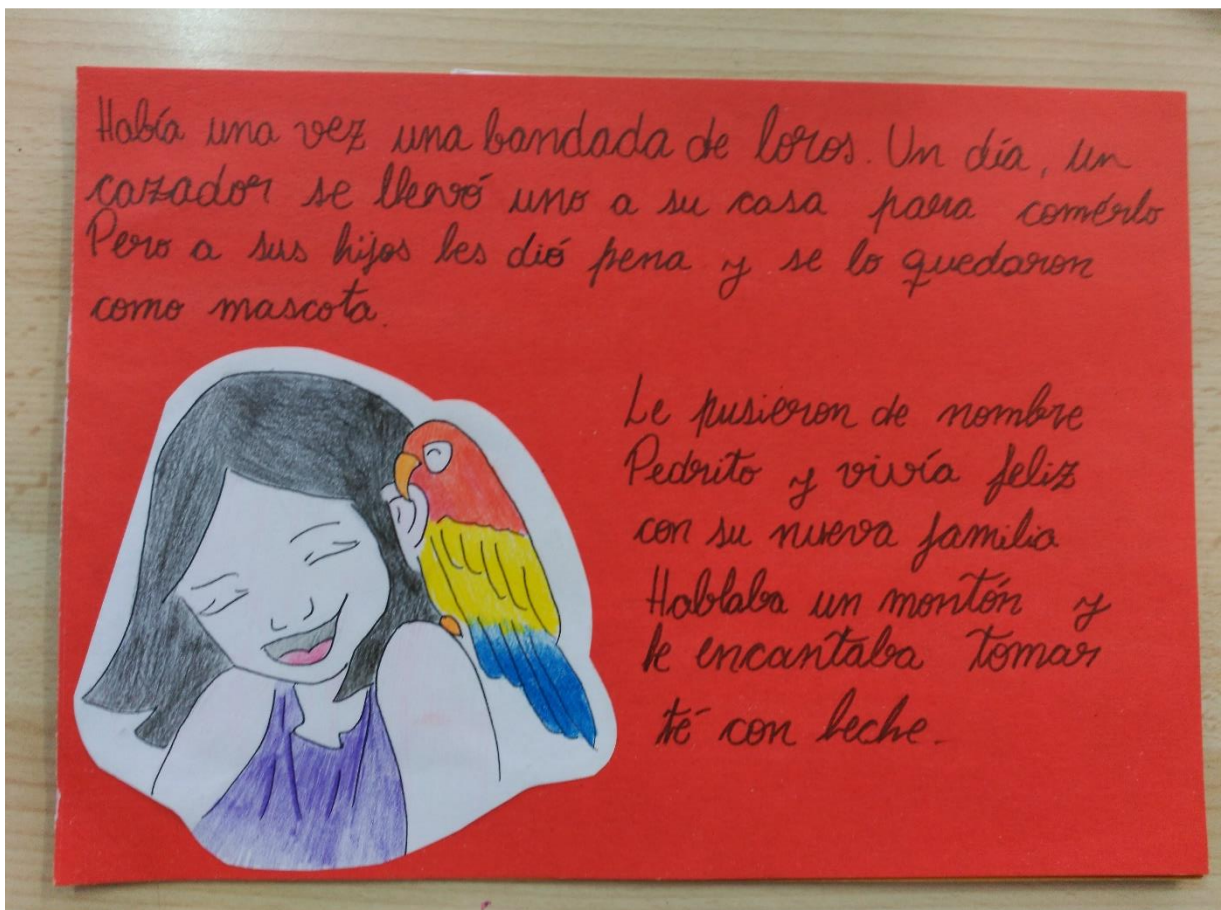 Había una vez una bandada de loros. Un día, un
cazador se llevó uno a su casa para comérlo
Pero a sus hijos les dió pena y se lo quedaron
como mascota.
Le pusieron de nombre
Pedrito y vivía feliz
con su nueva familia
Hablaba un montón y
le encantaba tomar
té con leche.